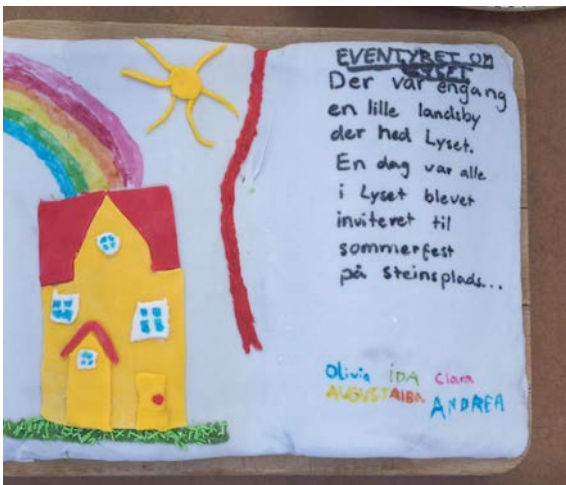 EVENTYRET OM
LYSET
Der var engang
en lille landsby
der hed Lyset.
En dag var alle
i Lyset blevet
inviteret til
sommerfest
på steinsplads...
Olivia IDA Clara
AUGUST ALBA ANDREA